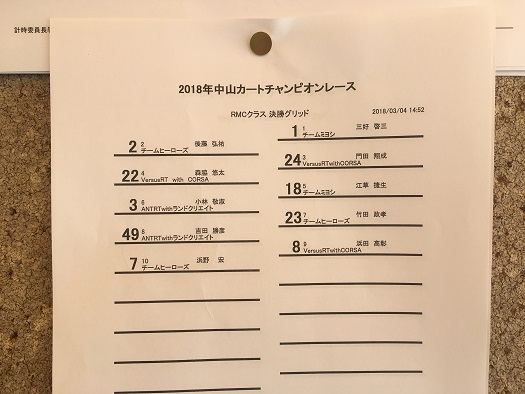 計時委員長
2018年中山カートチャンピオンレース
RMCクラス 決勝グリッド
2018/03/04 14:52
1 1 三好 啓三
チームミヨシ
2 2 後藤 弘祐
チームヒーローズ
24 3 門田 翔成
VersusRTwithCORSA
22 4 森脇 悠太
VersusRT with CORSA
18 5 江草 捷生
チームミヨシ
3 6 小林 敬淑
ANTRTwithランドクリエイト
23 7 竹田 政孝
チームヒーローズ
49 8 吉田 勝彦
ANTRTwithランドクリエイト
8 9 浜田 高彰
VersusRTwithCORSA
7 10 浜野 宏
チームヒーローズ